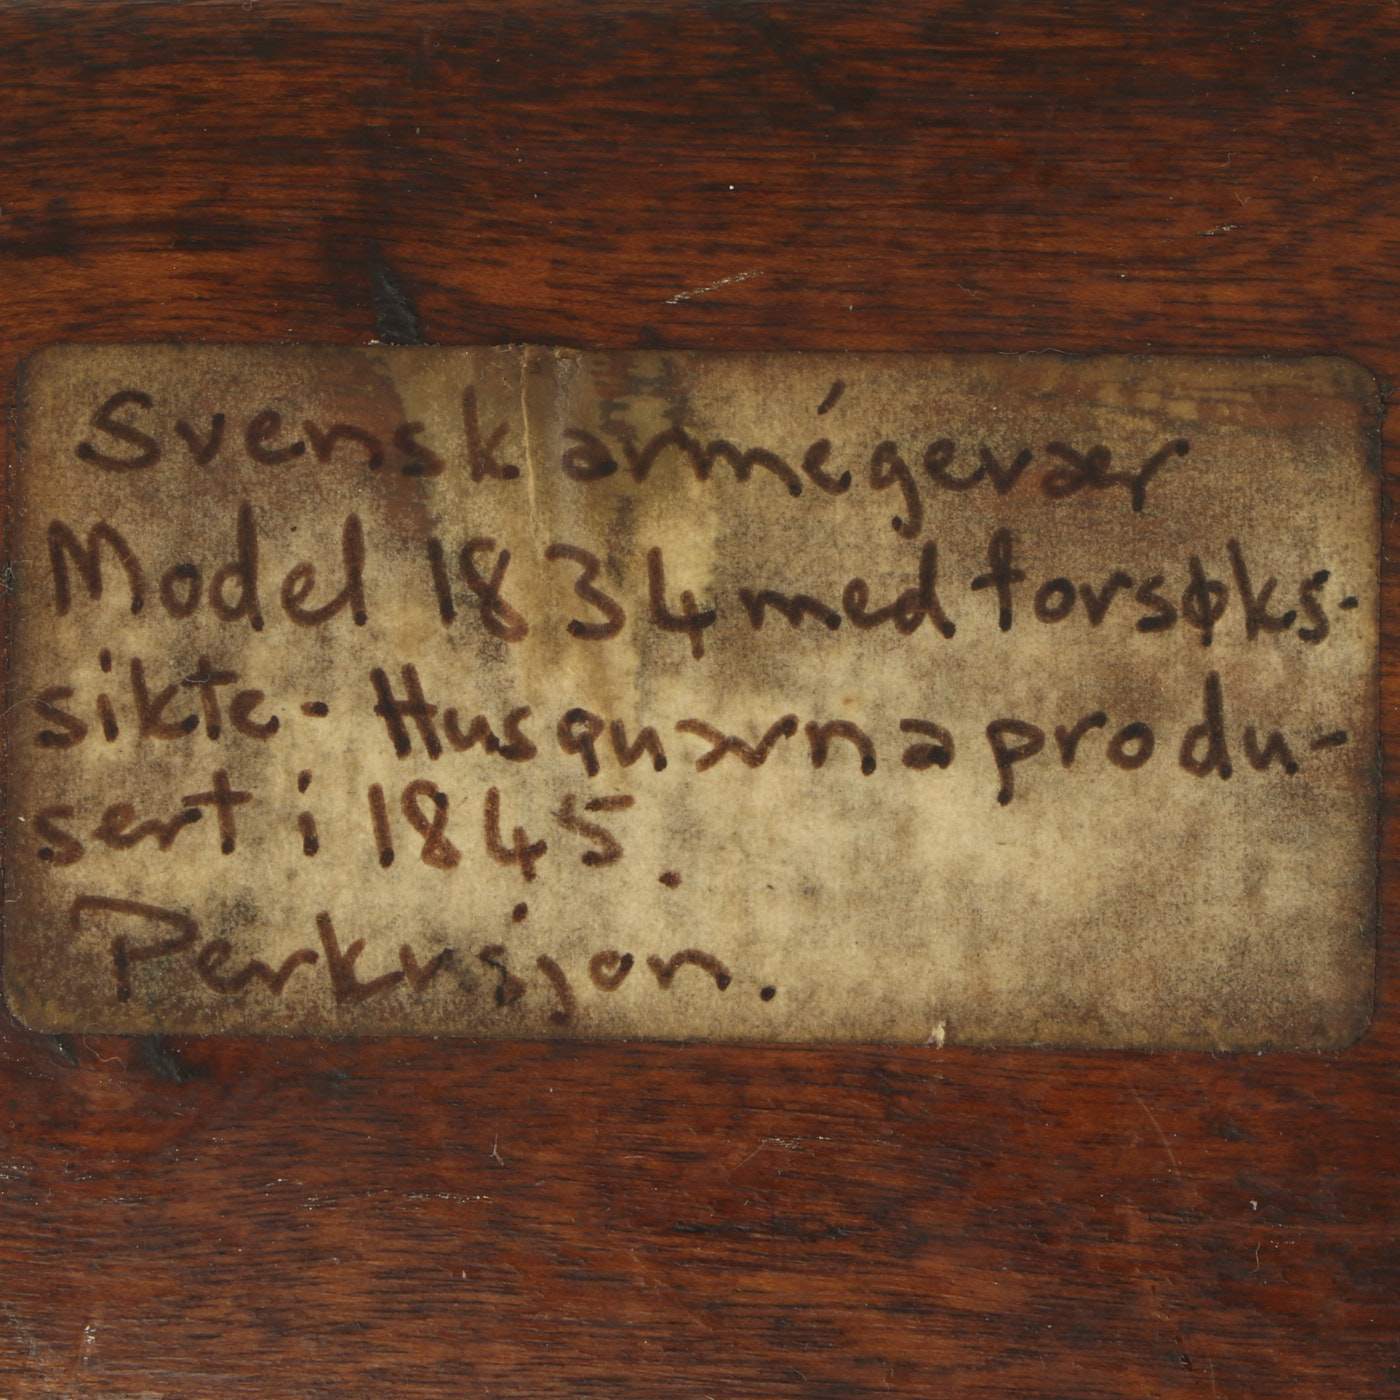 Svensk armégevær
Model 1834 med forsøks-
sikte - Husquærna produ-
sert i 1845.
Perkusjon.